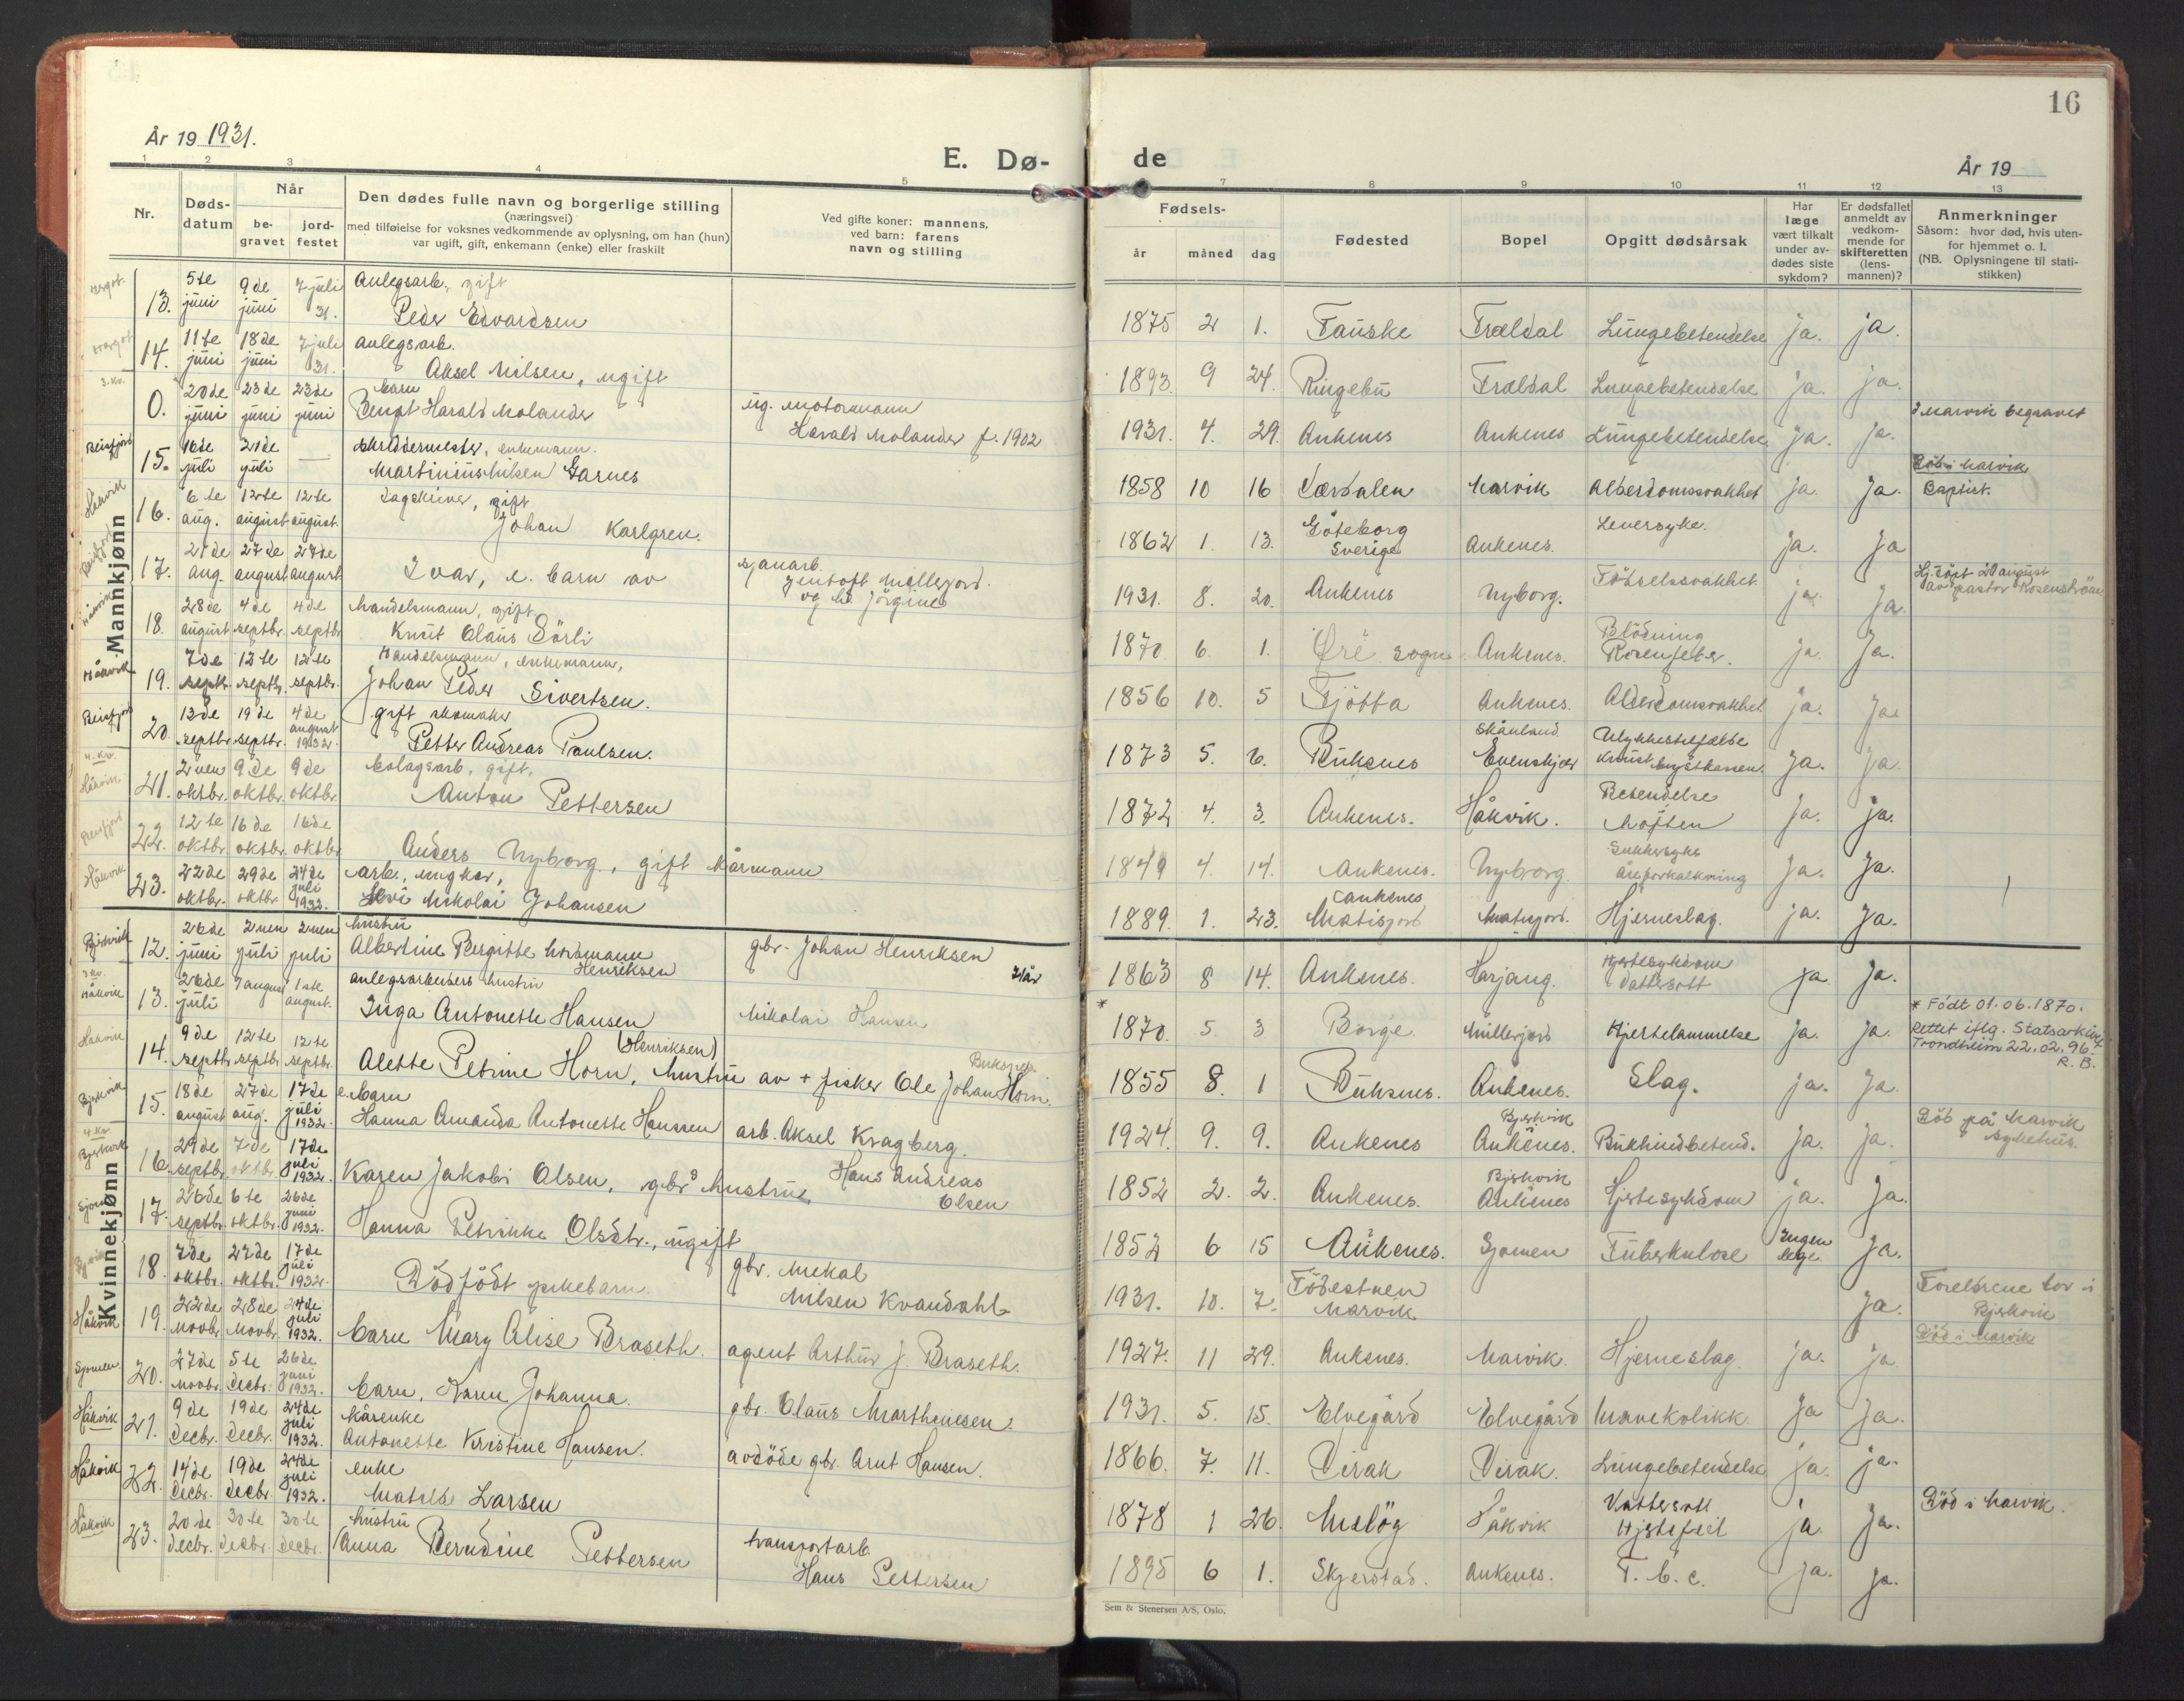 År 19 1931.
E. Dø-
1 2 3 4 5
Nr.
Døds-
datum
Når
be-
gravet
jord-
festet
Den dødes fulle navn og borgerlige stilling
(næringsvei)
med tilføielse for voksnes vedkommende av oplysning, om han (hun)
var ugift, gift, enkemann (enke) eller fraskilt
Ved gifte koner: mannens,
ved barn: farens
navn og stilling
Mannkjønn
13. 5te juni 9de juni 7 juli 31. Anlegsarb., gift
Peder Edvardsen
14. 11te juni 18de juni 7 juli 31. anlegsarb.
Aksel Nilsen, ugift
3. Kv.
0. 20de juni 23de juni 23de juni barn
Bengt Harald Molander ug. motormann
Harald Molander f. 1902
Beisfjord 15. 16de juli 21de juli — skreddermester, enkemann.
Martinius Nilsen Garnes
Håkvik 16. 6te aug. 12te august 12te august. Sagskriver, gift
Johan Karlgren.
Beisfjord 17. 21de aug. 27de august 27de august Ivar, e. barn av sjauarb.
Jentoft Millerjord.
og h. Jörgine
Håkvik 18. 28de august 4de septbr. 4de septbr. Handelsmann, gift
Knut Olaus Sörli
Håkvik 19. 7de septbr. 12te septbr. 12te septbr. Handelsmann, enkemann,
Johan Peder Sivertsen.
Beisfjord 20. 13de septbr. 19de septbr. 4de august 1932. gift skomaker
Petter Andreas Paulsen.
4. Kv.
Håkvik 21. 2nen oktbr. 9de oktbr. 9de oktbr. bolagsarb. gift,
Anton Pettersen
Beisfjord 22. 12te oktbr. 16de oktbr. 16de oktbr.
Anders Nyborg, gift kårmann
Håkvik 23. 22de oktbr. 29de oktbr. 24de juli 1932. arb., ungkar,
Levi Nikolai Johansen
Kvinnekjønn
Bjerkvik 12. 26de juni 2nen juli 2nen juli hustru
Albertine Bergitte Nordmann
Henriksen gbr. Johan Henriksen
3 Kv.
Håkvik 13. 26de juli 7 august 1ste august. anlegsarbeiders hustru
Inga Antonette Hansen Nikolai Hansen
Håkvik 14. 9de septbr. 12te septbr. 12te septbr. (Henriksen)
Alette Petrine Horn, hustru av + fisker Ole Johan Horn. Buksnes.
Bjerkvik 15. 18de august 27de aug. 17de juli 1932. e. barn
Hanna Amanda Antonette Hanssen arb. Aksel Kragberg.
4. Kv.
Bjerkvik 16. 29de septbr. 7de oktbr. 17de juli 1932.
Karen Jakobi Olsen, gbrs hustru, Hans Andreas
Olsen
Sjomen 17. 26de septbr. 6te oktbr. 26de juni 1932.
Hanna Petrikke Olsdtr., ugift
18. 7de oktbr. 27de oktbr. 17de juli 1932.
Dödfödt pikebarn. gbr. Mekal
Nilsen Kvandahl
Håkvik 19. 22de novbr. 28de novbr. 24de juli 1932.
barn Mary Alise Braseth. agent Arthur J. Braseth.
Sjomen 20. 27de novbr. 5te decbr. 26de juni 1932.
barn, Karen Johanna. gbr. Olaus Marthinesen.
Håkvik 21. 9de decbr. 19de decbr. 24de juli 1932. kårenke
Antonette Kristine Hansen. avdöde gbr. Arnt Hansen.
Håkvik 22. 14de decbr. 19de decbr. 24de juli 1932. enke
Matilde Larsen
Håkvik 23. 20de decbr. 30te decbr. 30te decbr. hustru
Anna Berndine Pettersen transportarb
Hans Pettersen
16
de
År 19
7 8 9 10 11 12 13
Fødsels-
år måned dag
Fødested
Bopel
Opgitt dødsårsak
Har
læge
vært tilkalt
under av-
dødes siste
sykdom?
Er dødsfallet
anmeldt av
vedkom-
mende for
skifteretten
(lens-
mannen)?
Anmerkninger
Såsom: hvor død, hvis uten-
for hjemmet o. l.
(NB. Oplysningene til stati-
stikken)
1875 2 1. Fauske Trældal Lungebetendelse ja. ja.
1893 9 24. Ringebu Trældal Lungebetendelse ja. ja.
1931. 4. 29. Ankenes Ankenes Lungebetendelse. ja. ja. I Narvik begravet
1858 10 16 Værdalen Narvik Alderdomssvakhet ja. ja. Död i Narvik
Baptist.
1862 1. 13. Göteborg
Sverige Ankenes. Leversyke. ja. Ja
1931. 8. 20. Ankenes Nyborg. Födselssvakhet ja. Ja. Hj.döpt 20 august
av pastor Rosenström
1870 6 1. Øre sogn Ankenes. Blödning
Rosenfeber. ja. Ja.
1856 10. 5 Tjötta Ankenes. Alderdomsvakhet ja. Ja
1873 5. 6. Buksnes Skånland
Evenskjær Ulykkestilfælde
Knust brystkassen. Ja. Ja.
1872 4. 3. Ankenes. Håkvik. Betendelse
hoften Ja. ja.
1849 4. 14. Ankenes. Nyborg. Sukkersyke
Åreforkalkning Ja. Ja.
1889. 1. 23. Ankenes
Matisjord Matisjord. Hjerneslag. ja. Ja.
1863 8 14. Ankenes. Harjang. Hjertesykdom
Vattersott ja Ja.
*
1870. 5. 3 Borge Millerjord Hjertelammelse ja. ja. * Födt 01.06.1870.
Rettet iflg. Statsarkivet
Trondheim 22.02.96.
R. B.
1855 8. 1 Buksnes. Ankenes. Slag. ja. Ja.
1924. 9. 9. Ankenes Bjerkvik
Ankenes. Bukhindebetend. Ja. ja. Död på Narvik
sykehus.
1852 2. 2. Ankenes. Bjerkvik
Ankenes Hjertesykdom ja. Ja.
1852 6 15 Ankenes. Sjomen Tuberkulose Ingen
lege. Ja.
1931. 10. 7. Födestuen
Narvik Ja. Foreldrene bor i
Bjerkvik
1927. 11 29. Ankenes. Narvik. Hjerneslag. ja. ja. Död i Narvik
1931. 5. 15. Elvegård Elvegård Mavekolikk. Ja Ja.
1866. 7. 11. Virak Virak. Lungebetendelse ja. ja.
1878 1 26. Målselv Håkvik Vattersott
Hjertefeil ja. Ja. Död i Narvik.
1895 6 1. Skjerstad. Ankenes. T. b. c. ja. ja.
Sem & Stenersen A/S, Oslo.